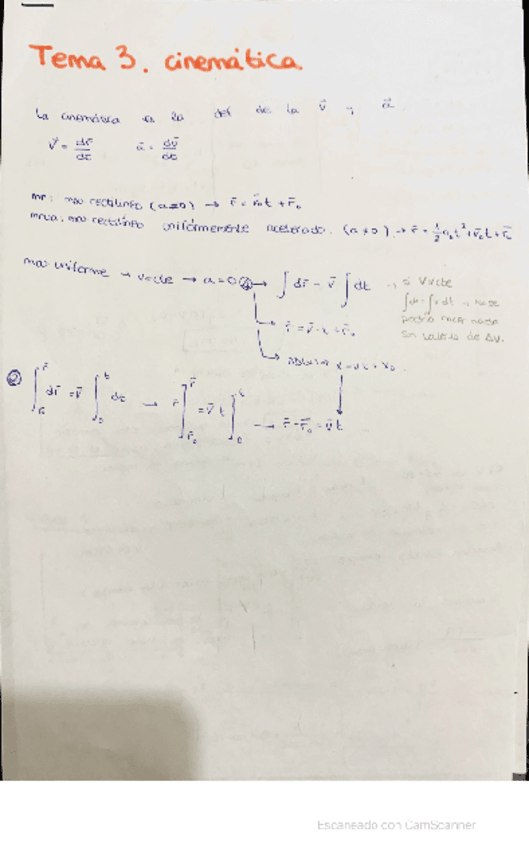 Tema 3. cinemática.
La cinemática es la def de la v⃗ y a⃗
v⃗ = dr⃗/dt   a⃗ = dv⃗/dt
mr: mov rectilíneo (a=0) → r⃗ = v⃗₀t + r⃗₀
mrua: mov rectilíneo uniformemente acelerado. (a≠0) → r⃗ = ½a₀t² + v⃗₀t + r⃗₀
mov uniforme → v=cte → a=0 → ∫dr⃗ = v⃗∫dt → si v≠cte
∫dr = ∫v dt → no se
podría hacer nada
sin saberla de
→ r⃗ = v⃗·t + r⃗₀
→ x = vt + x₀
② ∫ dr⃗ = v⃗ ∫ dt → r⃗] = v⃗ t] → r⃗ - r⃗₀ = v⃗t
Escaneado con CamScanner